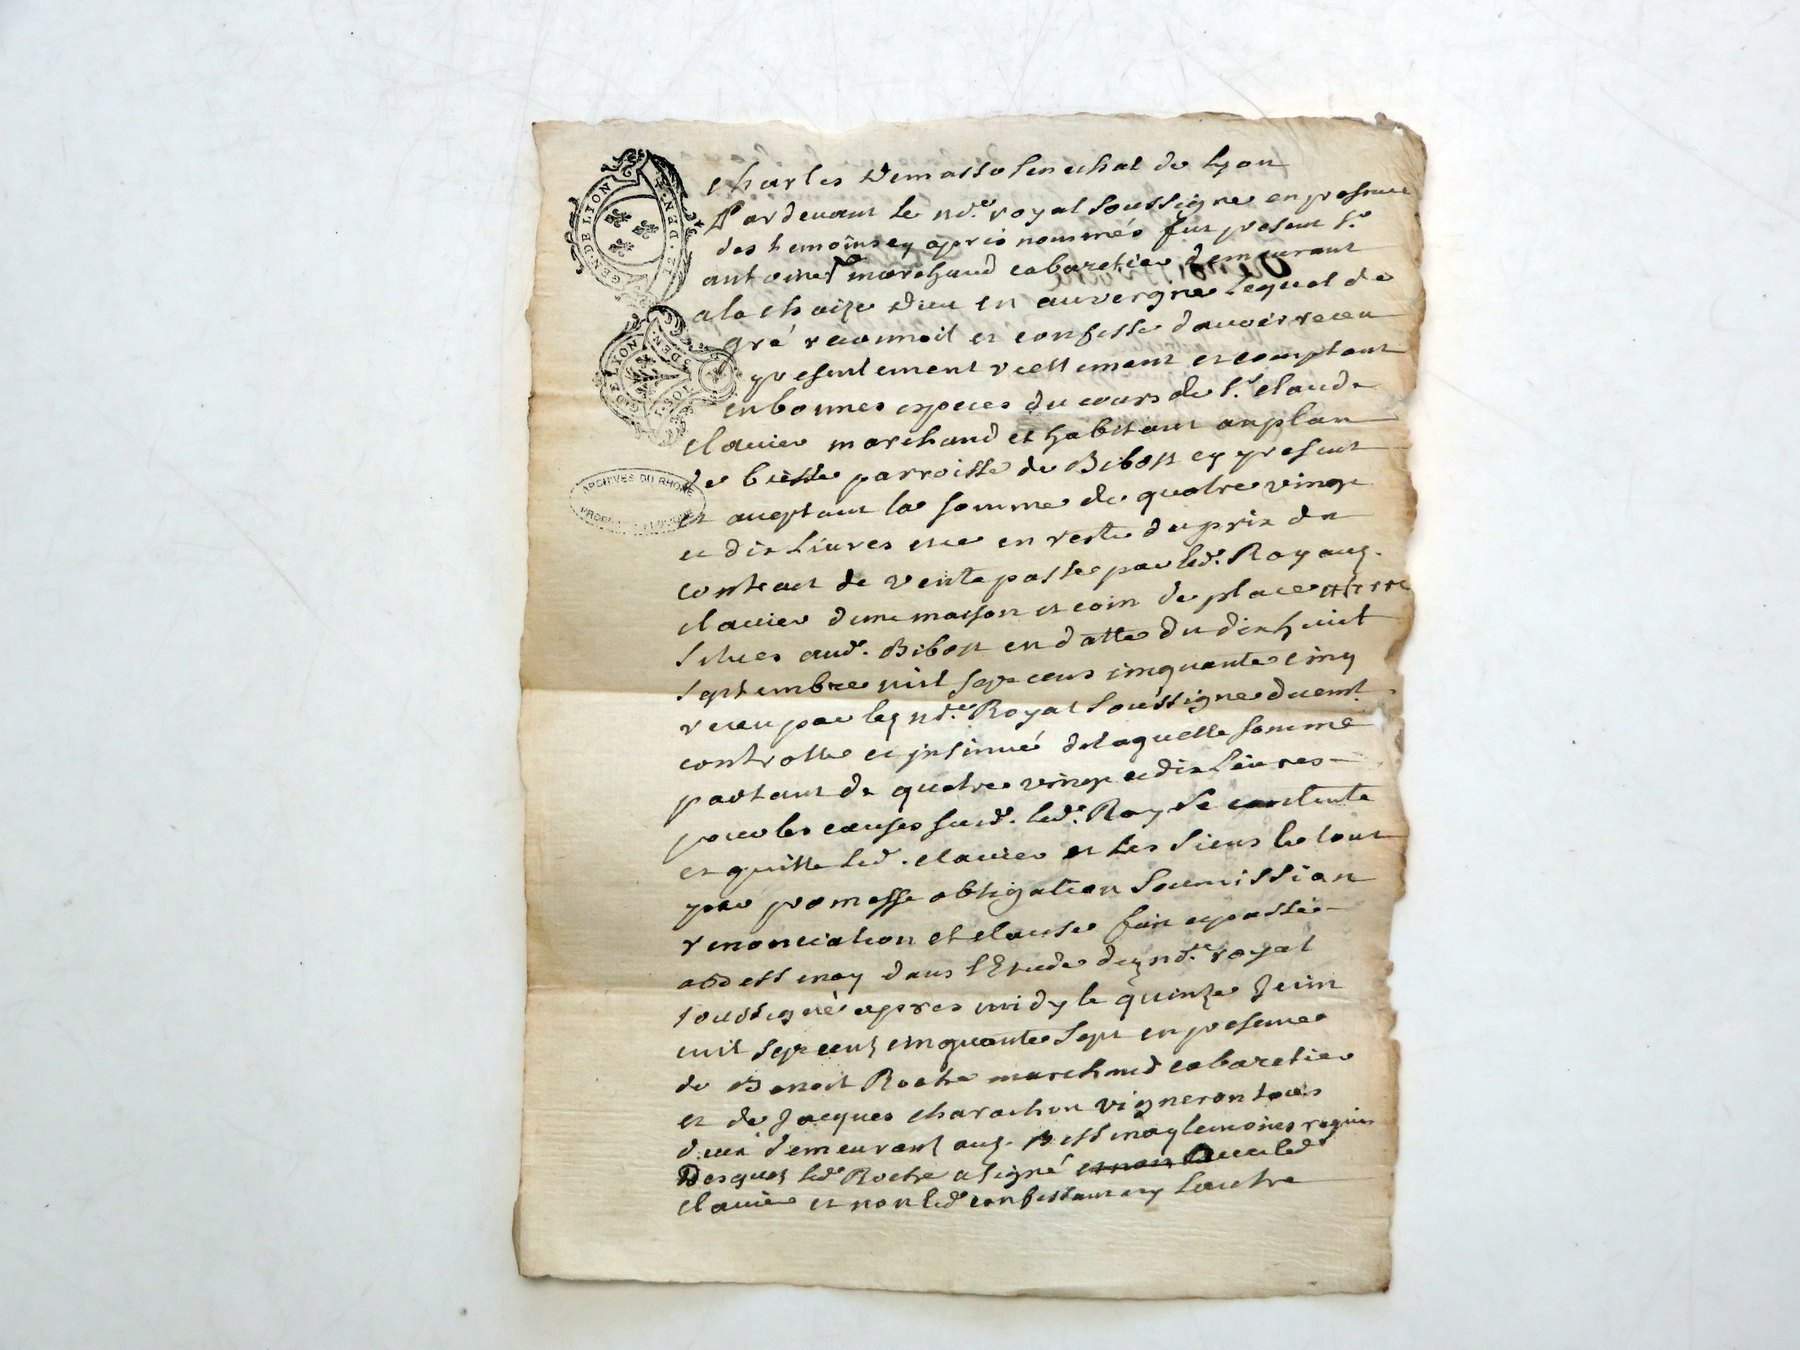 GEN. DE LYON
G. D. LYON
ARCHIVES DU RHÔNE
Charles Demasso Senechal de Lyon
Pardevant le nore. royal soussigné en presence
des temoins cy apres nommés fut present Sr.
antoine marchand cabaretier demeurant
a la Chaize Dieu en auvergne Lequel de
gré reconnoit et confesse d'avoir receu
presentement reellement et comptant
en bonnes especes du cours de Sr. claude
clavier marchand et habitant au plan
de parroisse de Bibost cy present
et aceptant la somme de quatre vingt
et dix Livres en reste du prix du
contract de vente passé par led. Roy aud.
clavier d'une maison et coin de place
situés aud. Bibost en datte du dix huit
septembre mil sept cens cinquante cinq
receu par led. nore. Royal soussigné duemt.
controllé et insinué de laquelle somme
partant de quatre vingt et dix Livres
pour les causes susd. led. Roy se contente
et quitte led. clavier et les siens le tout
par promesse obligation soumission
renonciation et clause fait et passé
a Bessenay dans l'Etude dud. nore. royal
soussigné apres midy le quinze Juin
mil sept cent cinquante sept en presence
de Benoit Roche marchand cabaretier
et de Jacques charachon vigneron tous
deux demeurant aud. Bessenay temoins requis
Desquels led. Roche a signé avec led.
clavier et non led. confessant ny L'autre